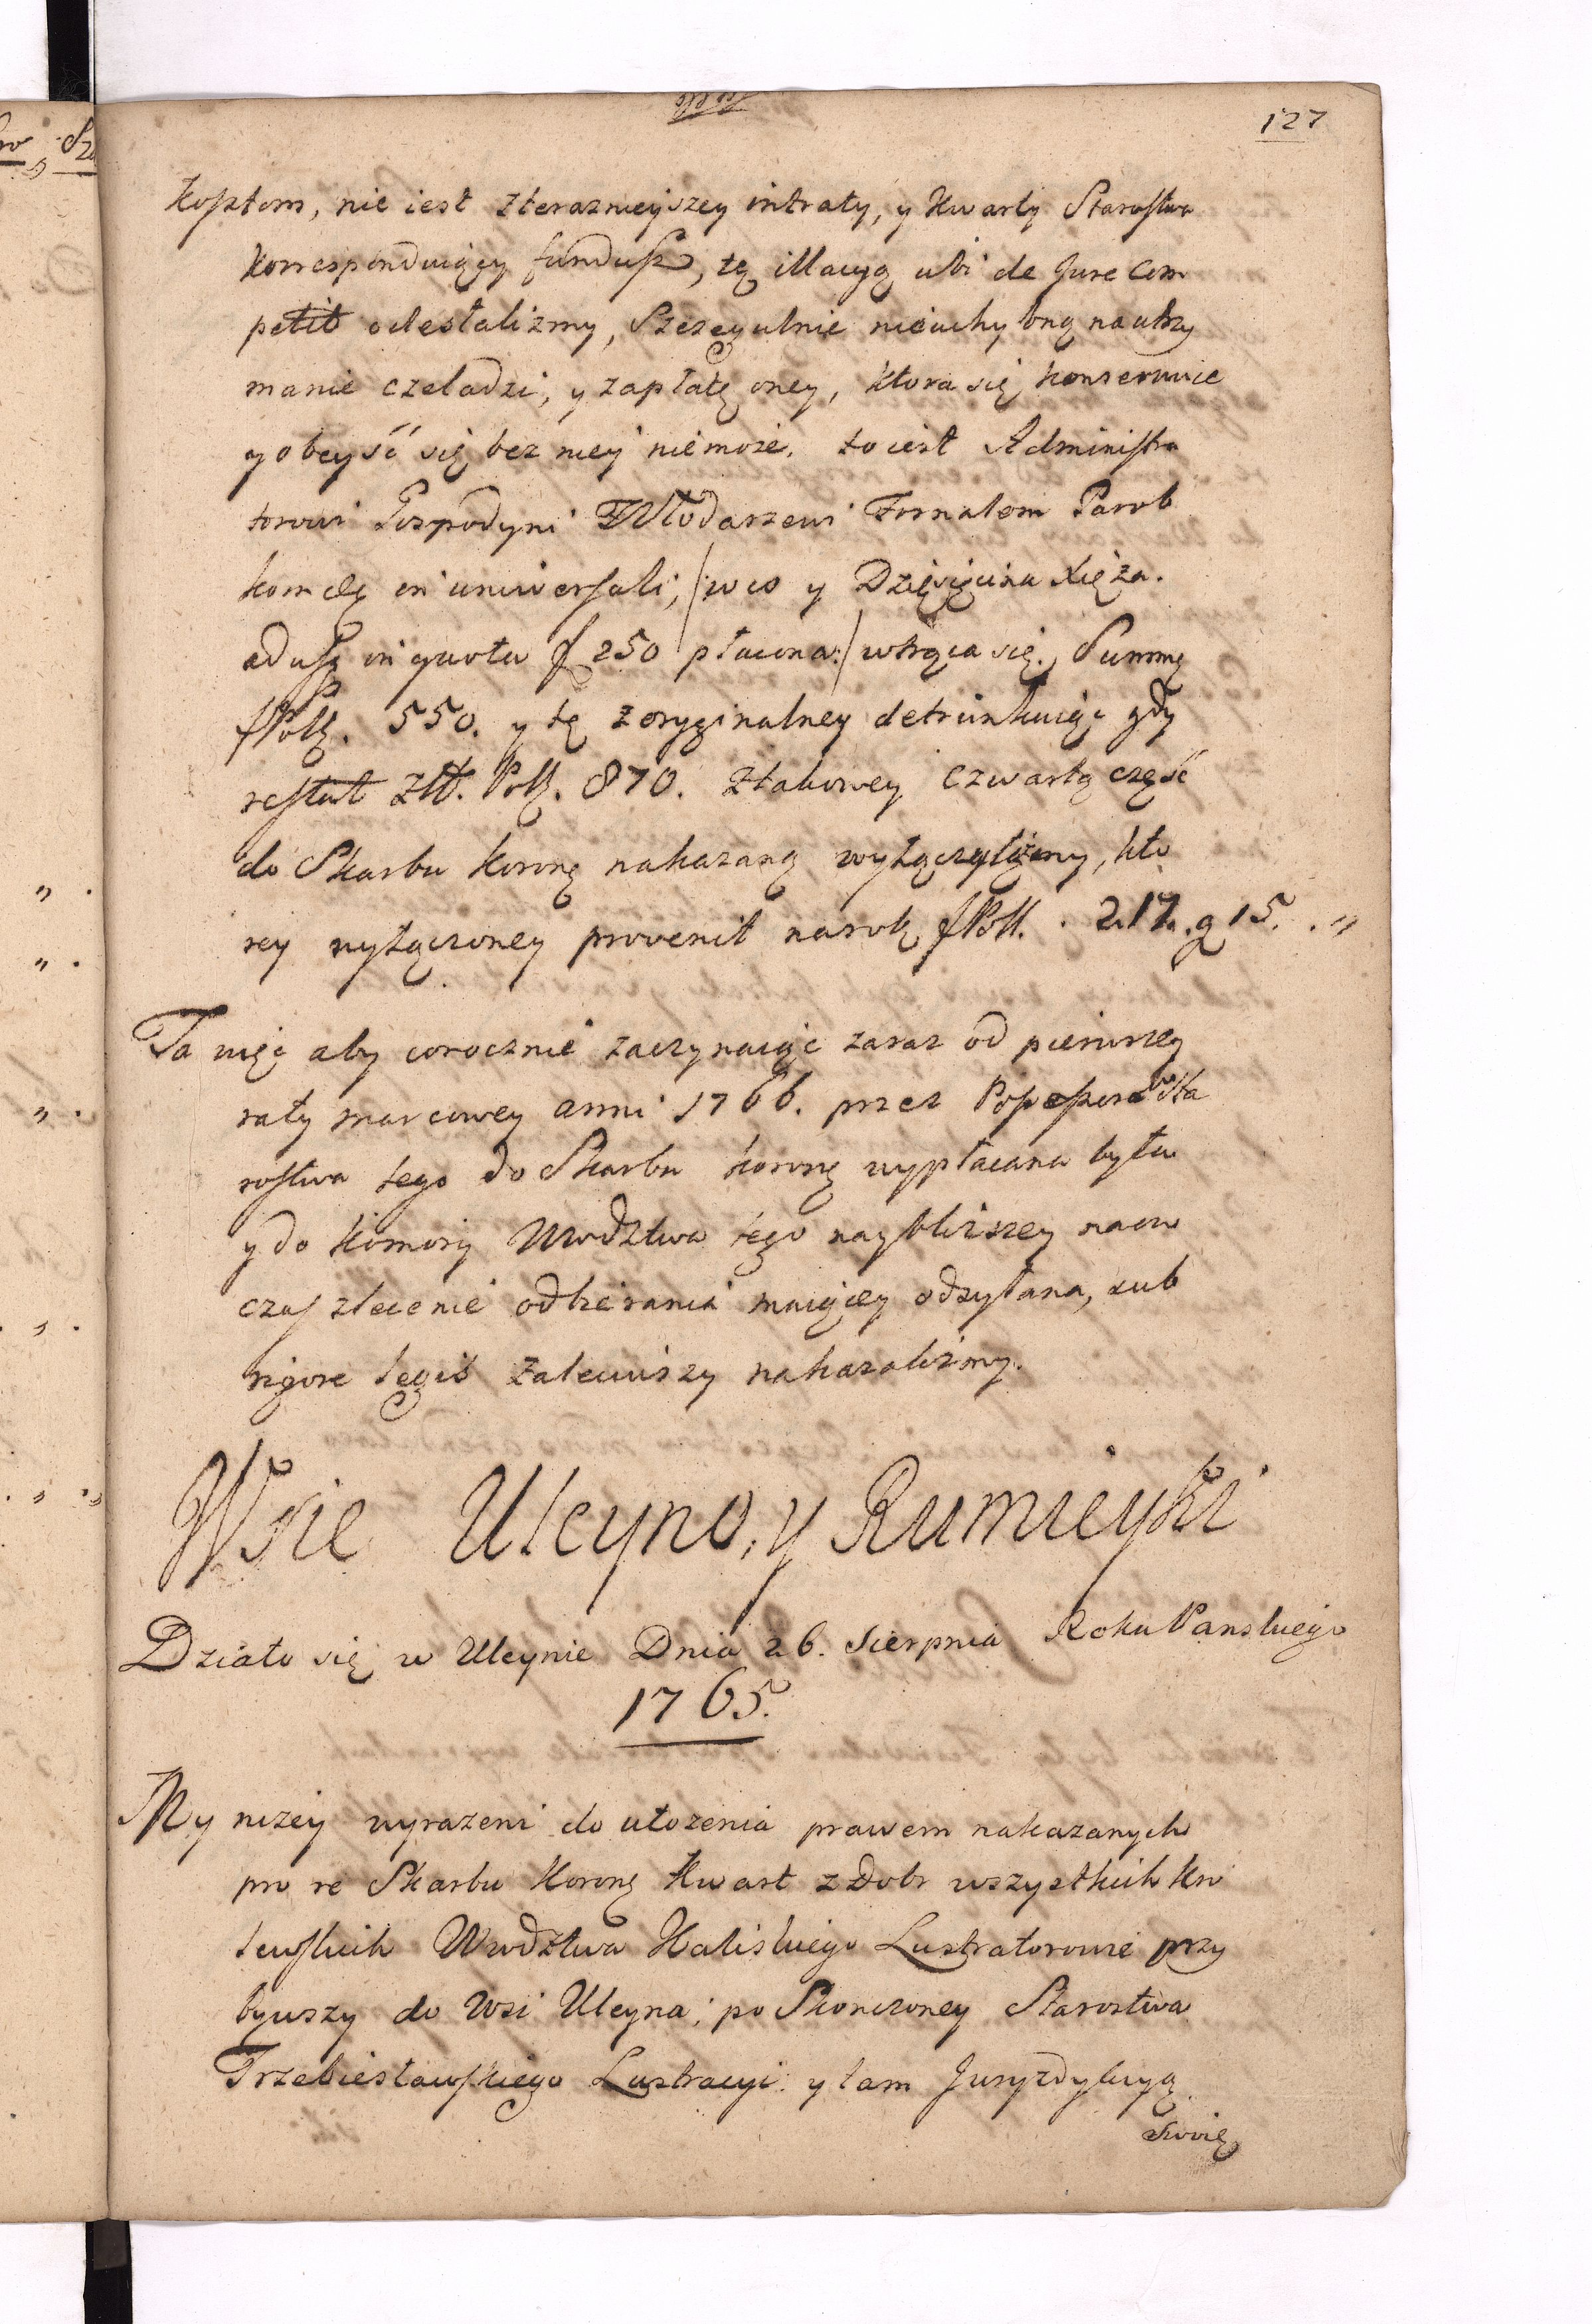 127
Kosztom, nie iest zteraznieyszey intraty, y Kwarty Starostwa
Korresponduiący fundusz, tę illacyą ubi de Jure Com
petit odesłalizmy, Szczegulnie nieuchylną na utrzy
manie czeladzi, y zapłatę oney, ktora się konserwuie
y obeyść się bez niey niemoże. to iest Administra
torowi Gospodyni Włodarzewi Fornalom Parob
kom etc in universali, /:w co y Dzięsięcina Xięża.
adusz in quota f 250 płacona:/ wtrąca się. Summę
fPolg. 550. y tę zoryginalney detrunkuiąc gdy
restat Złł. Polg. 870. Ztakowey Czwartą część
do Skarbu Koronę nakazaną wyłączylizmy, kto
rey wyłączoney provenit na rok fPoll. 217. g 15.
Ta więc aby corocznie zaczynaiąc zaraz od pierwszey
raty marcowey anni 1766. przez Possessora Sta
rostwa tego do Skarbu Koronę wypłacana była
y do Komory Wwdztwa tego naybliższey naow
czas zlecenie odbierania maiącey odsyłana, sub
rigore Legis Zaleciwszy nakazalizmy.
Wsie Ulcyno, y Rumieyki
Działo się w Ulcynie Dnia 26. Sierpnia Roku Panskiego
1765.
My niżey wyrażeni do ułożenia prawem nakazanych
pro re Skarbu Koronę Kwart z Dobr wszystkich Kro
lewskich Wwdztwa Kaliskiego Lustratorowie przy
bywszy do Wsi Ulcyna; po Skonczoney Starostwa
Trzebiesławskiego Lustracyi: y tam Juryzdykcyą
Swoię